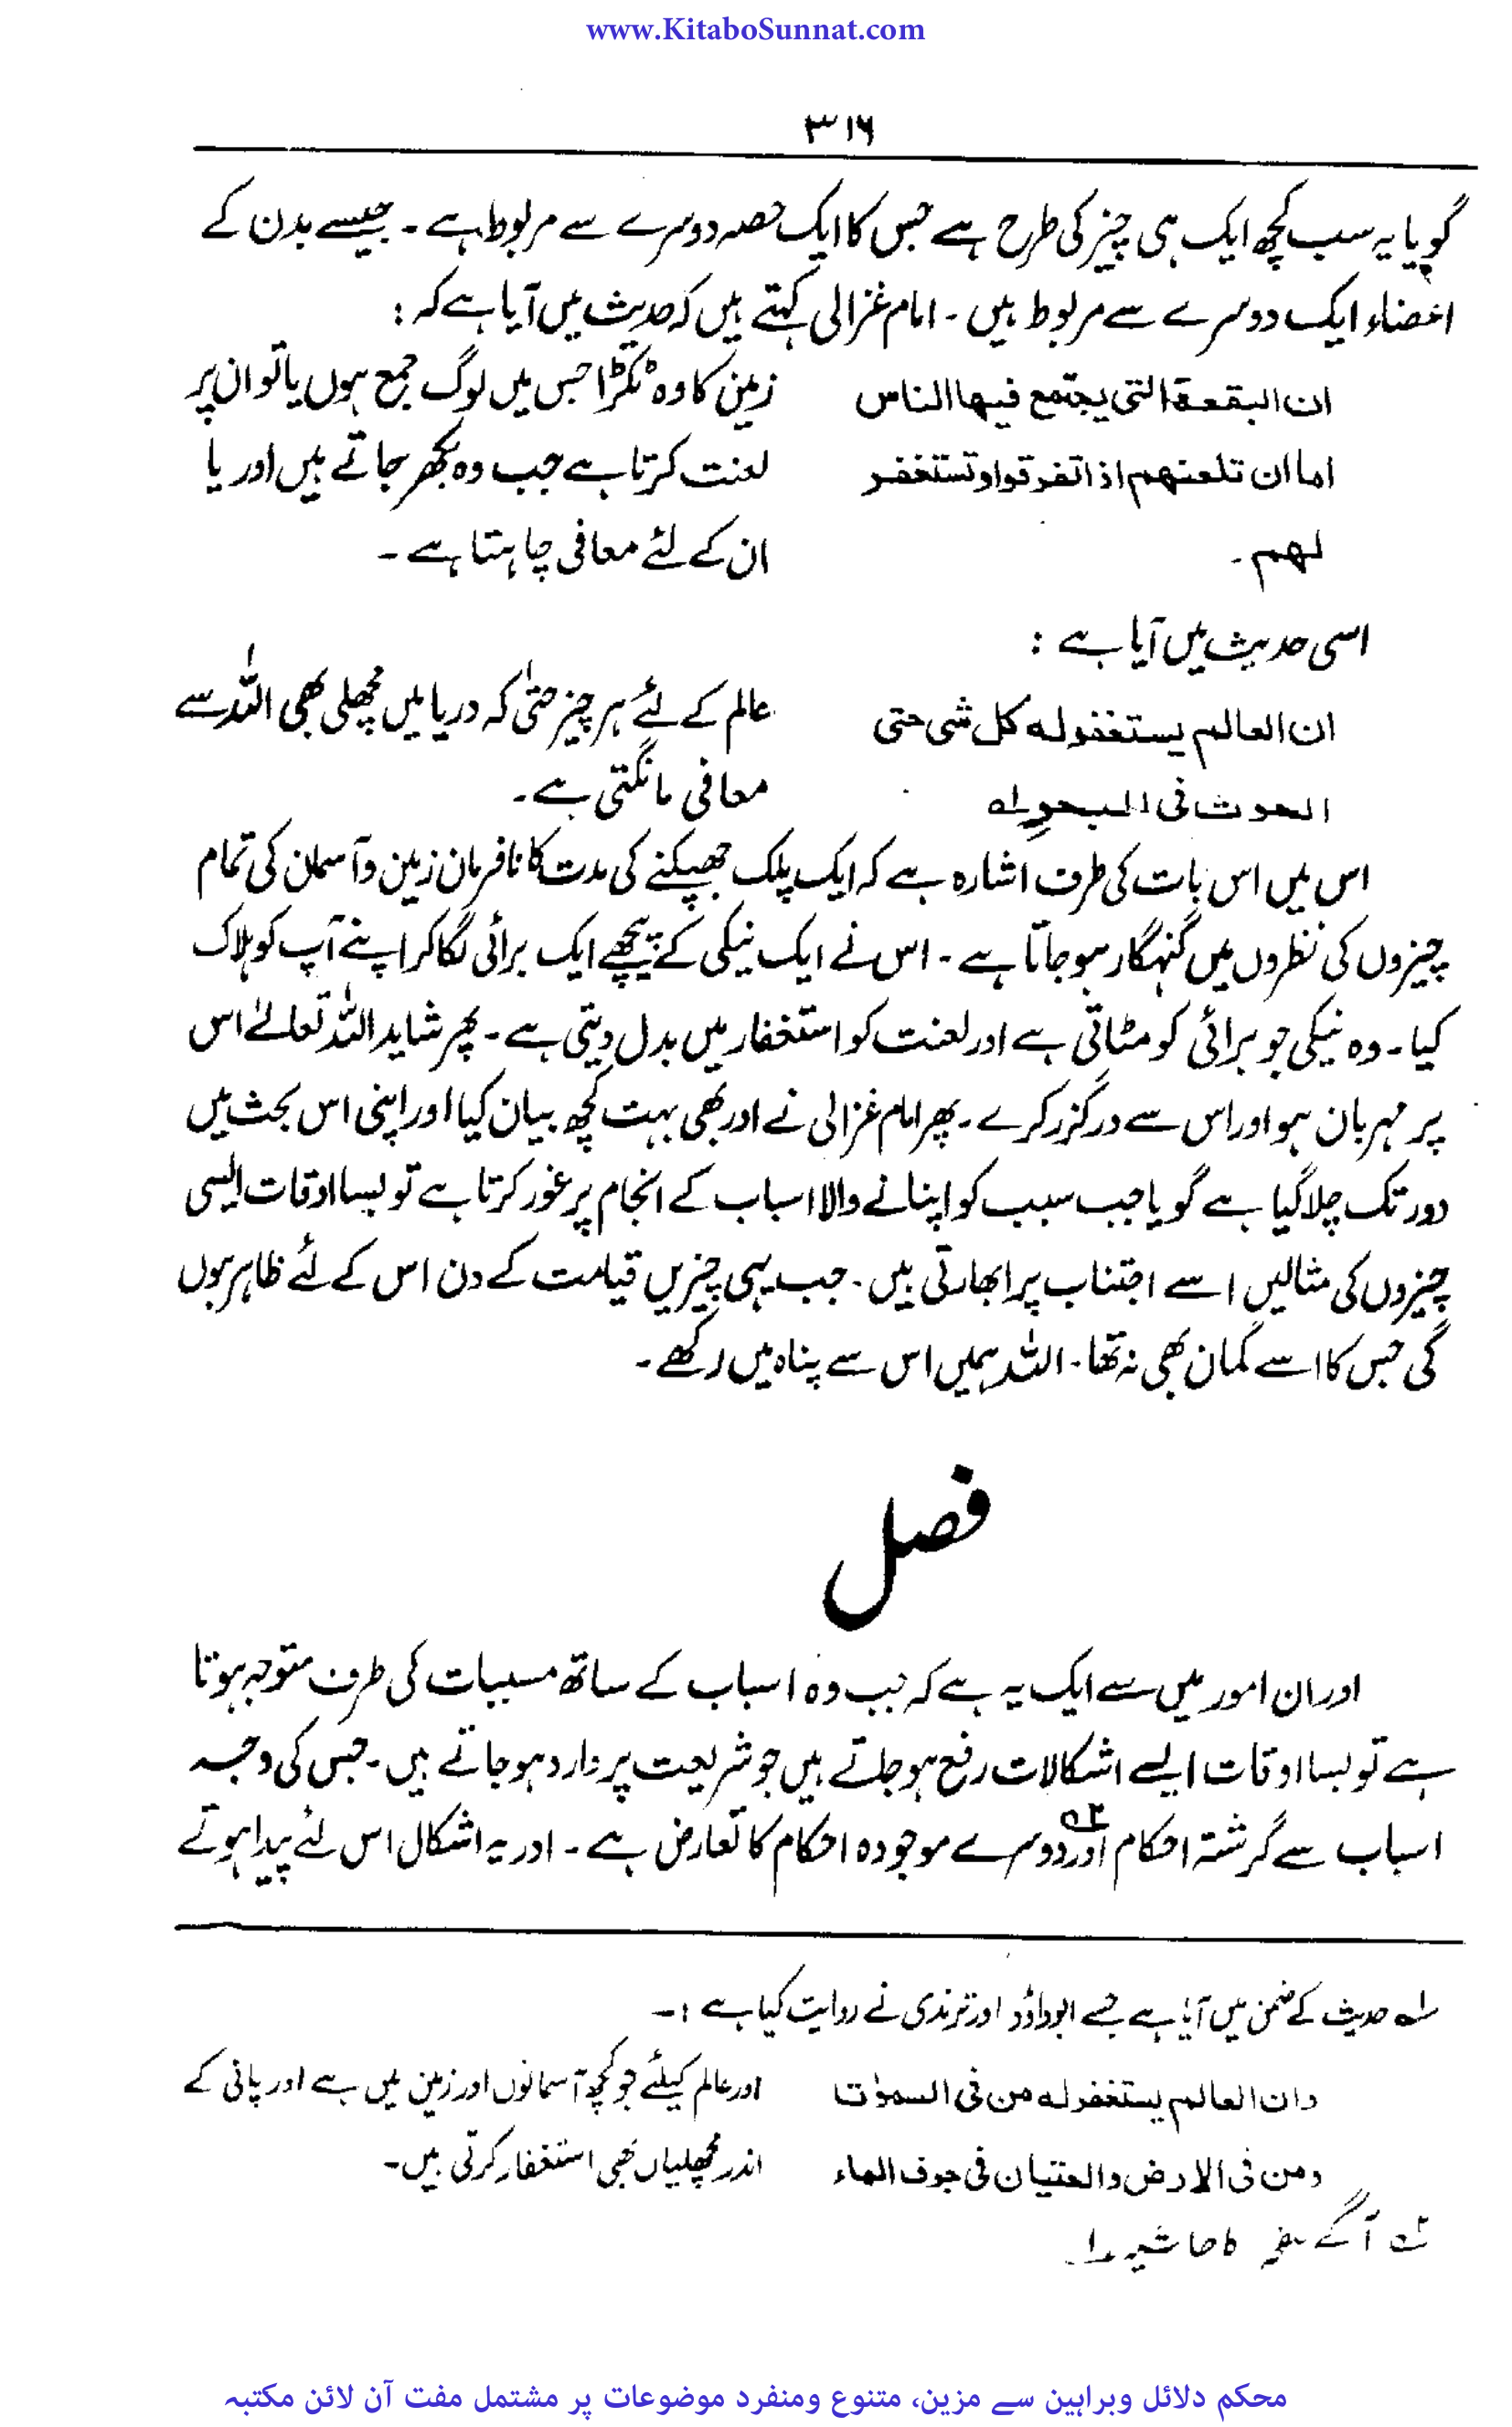 www.KitaboSunnat.com
۳۱۶
گویا یہ سب کچھ ایک ہی چیز کی طرح ہے جس کا ایک حصہ دوسرے سے مربوط ہے۔ جیسے بدن کے
اعضاء ایک دوسرے سے مربوط ہیں۔ امام غزالی کہتے ہیں کہ حدیث میں آیا ہے کہ:
ان البقعة التی یجتمع فیها الناس زمین کا وہ ٹکڑا جس میں لوگ جمع ہوں یا تو ان پر
اما ان تلعنهم اذا تفرقوا او تستغفر لعنت کرتا ہے جب وہ بکھر جاتے ہیں اور یا
لهم۔ ان کے لئے معافی چاہتا ہے۔
اسی حدیث میں آیا ہے:
ان العالم یستغفر له کل شی حتی عالم کے لئے ہر چیز حتیٰ کہ دریا میں مچھلی بھی اللہ سے
الحوت فی البحر لہ معافی مانگتی ہے۔
اس میں اس بات کی طرف اشارہ ہے کہ ایک پلک جھپکنے کی مدت کا نافرمان زمین و آسمان کی تمام
چیزوں کی نظروں میں گنہگار ہو جاتا ہے۔ اس نے ایک نیکی کے پیچھے ایک برائی لگا کر اپنے آپ کو ہلاک
کیا۔ وہ نیکی جو برائی کو مٹاتی ہے اور لعنت کو استغفار میں بدل دیتی ہے۔ پھر شاید اللہ تعالےٰ اس
پر مہربان ہو اور اس سے درگزر کرے۔ پھر امام غزالی نے اور بھی بہت کچھ بیان کیا اور اپنی اس بحث میں
دور تک چلا گیا ہے گویا جب سبب کو اپنانے والا اسباب کے انجام پر غور کرتا ہے تو بسا اوقات ایسی
چیزوں کی مثالیں اسے اجتناب پر ابھارتی ہیں۔ جب یہی چیزیں قیامت کے دن اس کے لئے ظاہر ہوں
گی جس کا اسے گمان بھی نہ تھا۔ اللہ ہمیں اس سے پناہ میں رکھے۔
فصل
اور ان امور میں سے ایک یہ ہے کہ جب وہ اسباب کے ساتھ مسببات کی طرف متوجہ ہوتا
ہے تو بسا اوقات ایسے اشکالات رفع ہو جاتے ہیں جو شریعت پر وارد ہو جاتے ہیں۔ جس کی وجہ
اسباب سے گزشتہ احکام اور ۲ہ دوسرے موجودہ احکام کا تعارض ہے۔ اور یہ اشکال اس لئے پیدا ہوتے
لہ حدیث کے ضمن میں آیا ہے جسے ابوداؤد اور ترمذی نے روایت کیا ہے:۔
وان العالم یستغفر له من فی السموٰت اور عالم کیلئے جو کچھ آسمانوں اور زمین میں ہے اور پانی کے
ومن فی الارض والحتیان فی جوف الماء اندر مچھلیاں بھی استغفار کرتی ہیں۔
۲ہ آگے صفحہ کا حاشیہ ۱۔
محکم دلائل وبراہین سے مزین، متنوع ومنفرد موضوعات پر مشتمل مفت آن لائن مکتبہ